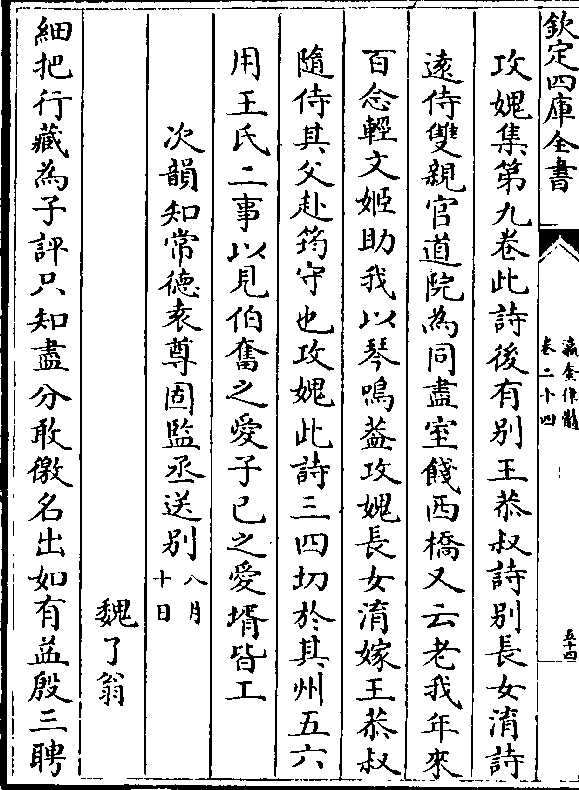 欽定四庫全書
瀛奎律髓
卷二十四
五十四
攻媿集第九卷此詩後有别王恭叔詩别長女淯詩
遠侍雙親官道院為同盡室餞西橋又云老我年來
百念輕文姬助我以琴鳴葢攻媿長女淯嫁王恭叔
隨侍其父赴筠守也攻媿此詩三四切於其州五六
用王氏二事以見伯奮之愛子已之愛壻皆工
次韻知常德袁尊固監丞送别八月十日
魏了翁
細把行藏為子評只知盡分敢徼名出如有益殷三聘